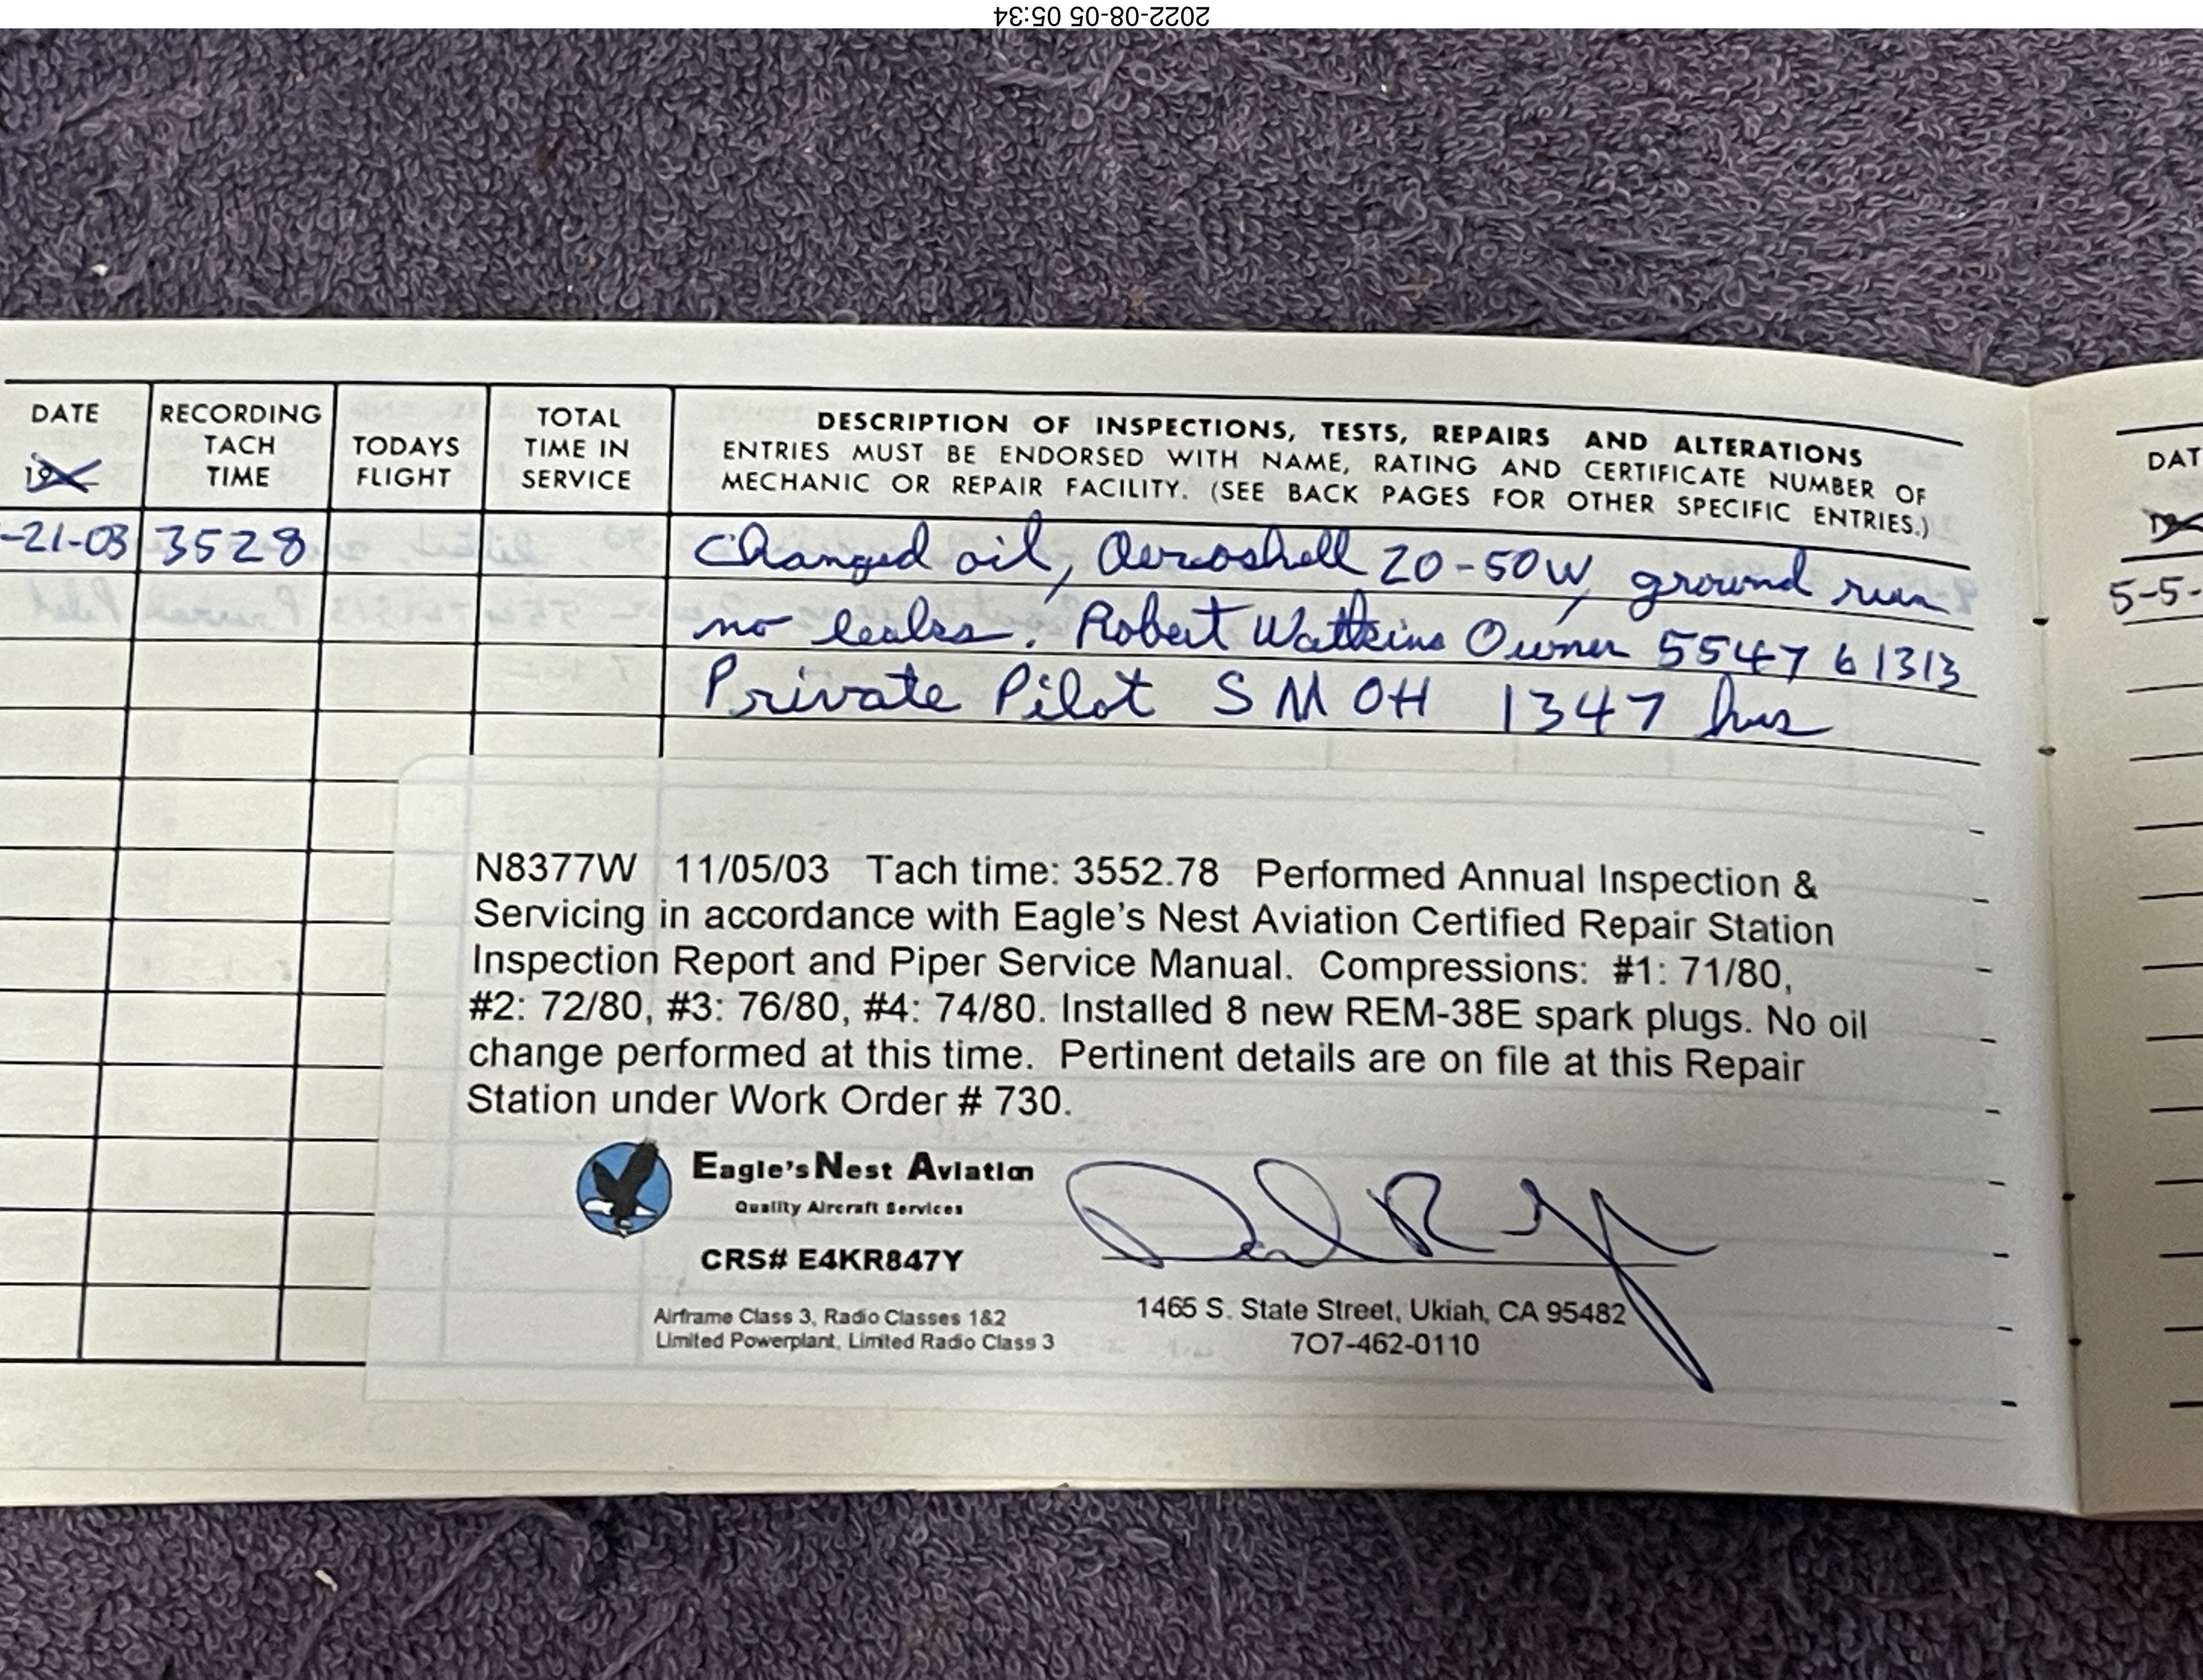 2022-08-05 05:34
DATE
19
RECORDING
TACH
TIME
TODAYS
FLIGHT
TOTAL
TIME IN
SERVICE
DESCRIPTION OF INSPECTIONS, TESTS, REPAIRS AND ALTERATIONS
ENTRIES MUST BE ENDORSED WITH NAME, RATING AND CERTIFICATE NUMBER OF
MECHANIC OR REPAIR FACILITY. (SEE BACK PAGES FOR OTHER SPECIFIC ENTRIES.)
-21-03 3528 Changed oil, Aeroshell 20-50W, ground run
no leaks. Robert Watkins Owner 554761313
Private Pilot SMOH 1347 hrs
N8377W 11/05/03 Tach time: 3552.78 Performed Annual Inspection &
Servicing in accordance with Eagle's Nest Aviation Certified Repair Station
Inspection Report and Piper Service Manual. Compressions: #1: 71/80,
#2: 72/80, #3: 76/80, #4: 74/80. Installed 8 new REM-38E spark plugs. No oil
change performed at this time. Pertinent details are on file at this Repair
Station under Work Order # 730.
Eagle's Nest Aviation
Quality Aircraft Services
CRS# E4KR847Y
Airframe Class 3, Radio Classes 1&2
Limited Powerplant, Limited Radio Class 3
1465 S. State Street, Ukiah, CA 95482
707-462-0110
DAT
19
5-5-